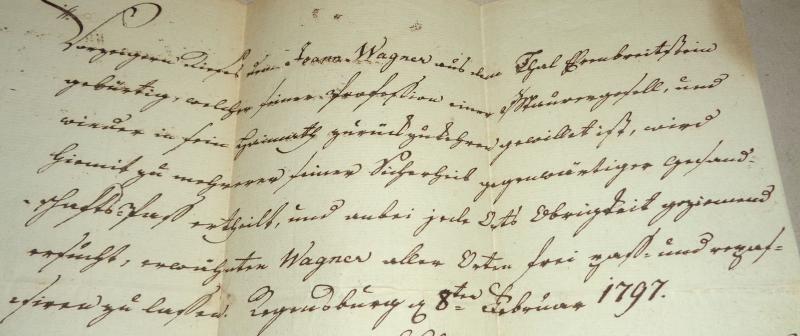 Vorzeigern dieses dem Joana Wagner aus dem Thal Erenbreitstein
gebürtig, welcher seiner Profession einer Maurergesell, und
wieder in sein Heimath zurückzukehren gewillet ist, wird
hiemit zu mehrerer seiner Sicherheit gegenwärtiger Gesand-
schafts-Pass ertheilt, und anbei jede Orts Obrigkeit geziemend
ersucht, erwähnten Wagner aller Orten frei pass- und repas-
siren zu lassen. Regensburg d 8ten Februar 1797.